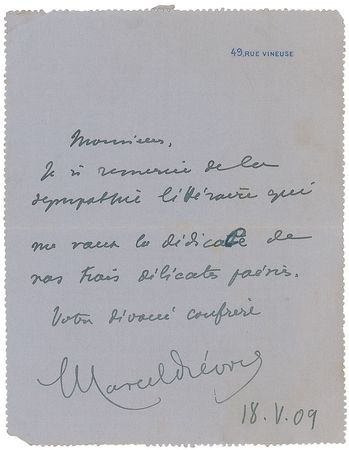 49, RUE VINEUSE
Monsieur,
Je vs remercie de la
sympathie littéraire qui
me vaut la dédicace de
vos trois délicats poésies.
Votre dévoué confrère
Marcel Prévost
18.V.09